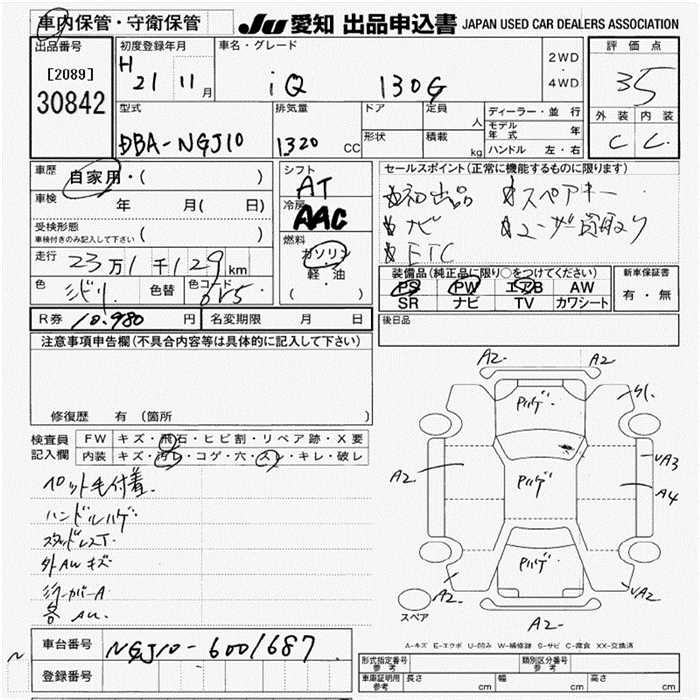 車内保管・守衛保管
JU 愛知 出品申込書 JAPAN USED CAR DEALERS ASSOCIATION
出品番号
[2089]
30842
初度登録年月
H 21 11月
車名・グレード
iQ 130G
2WD
・
4WD
評価点
35
外装 内装
C C
型式
DBA-NGJ10
排気量
1320 CC
ドア
形状
定員
人
積載
kg
ディーラー・並行
モデル年式 年
ハンドル 左・右
車歴
自家用・( )
車検
年 月( 日)
受検形態
車検付きのみ記入して下さい ( )
走行
23万1千129km
色
ミドリ
色替
色コード
シフト
AT
冷房
AAC
燃料
ガソリン
・
軽・油
( )
セールスポイント(正常に機能するものに限ります)
☆初出品 ☆スペアキー
☆ナビ ☆ユーザー買取り
☆ETC
装備品(純正品に限り○をつけてください)
PS PW エアB AW
SR ナビ TV カワシート
新車保証書
有・無
R券 10.980 円
名変期限 月 日
後日品
注意事項申告欄(不具合内容等は具体的に記入して下さい)
修復歴 有 (箇所 )
検査員記入欄
FW キズ・飛石・ヒビ割・リペア跡・X要
内装 キズ・汚レ・コゲ・穴・スレ・キレ・破レ
ペット毛付着.
ハンドルハゲ
スタッドレスT.
外AWキズ
ミラーカバーA
各AU.
A2 A2
Pハゲ
A2
Pハゲ
A3
A4
Pハゲ
A2 A2
A2
スペア
A-キズ E-エクボ U-凹み W-補修跡 S-サビ C-腐食 XX-交換済
車台番号
NGJ10-6001687
登録番号
形式指定番号 参考
類別区分番号 参考
車庫証明用 参考
長さ cm 幅 cm 高さ cm